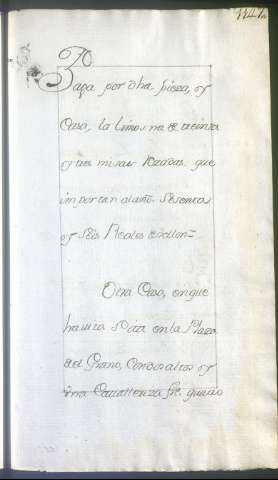 Paga por dha pieza, oy
Casa, la Limosna de treinta
y tres misas Rezadas que
importan al año Sesenta
y Seis Reales vellon=
Otra Casa, en que
havita en la Plaza
del Grano, Con sus altos y
una Cavalleriza